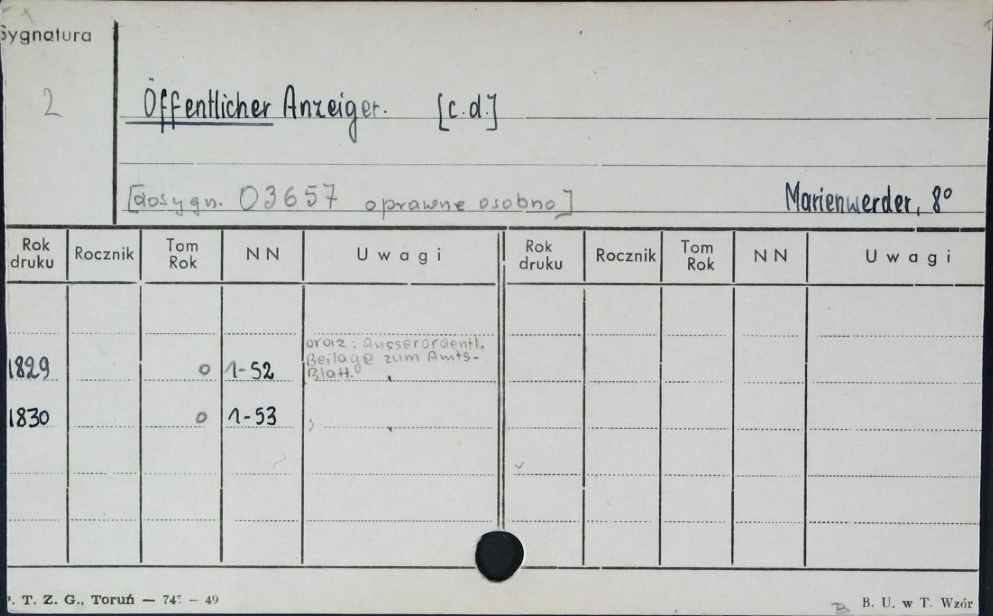 Sygnatura
2
Öffentlicher Anzeiger. [c.d.]
[do sygn. 03657 oprawne osobno]
Marienwerder, 8°
Rok druku Rocznik Tom Rok NN Uwagi Rok druku Rocznik Tom Rok NN Uwagi
oraz: Ausserordentl.
Beilage zum Amts-
Blatt.
1829 o 1-52
1830 o 1-53
T. Z. G., Toruń — 747 — 49
B. U. w T. Wzór